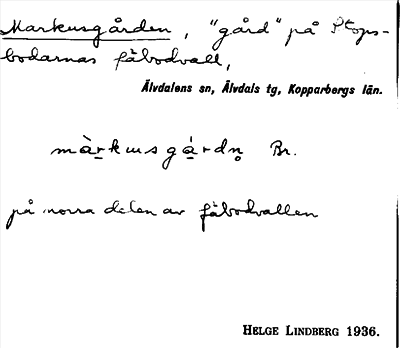 Markusgården, "gård" på Stops-
bodarnas fäbodvall,
Älvdalens sn, Älvdals tg, Kopparbergs län.
màrkusgá̱rdn̥ Br.
på norra delen av fäbodvallen
HELGE LINDBERG 1936.